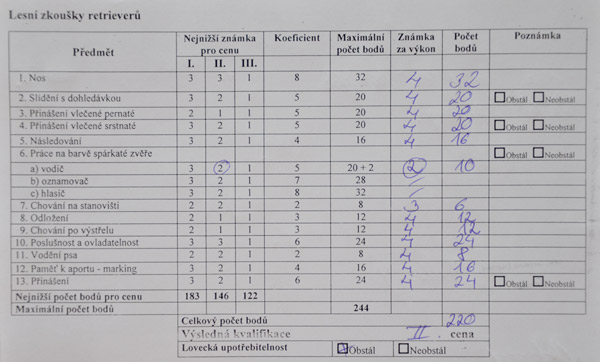 Lesní zkoušky retrieverů
Předmět Nejnižší známka pro cenu Koeficient Maximální počet bodů Známka za výkon Počet bodů Poznámka
I. II. III.
1. Nos 3 3 1 8 32 4 32
2. Slídění s dohledávkou 3 2 1 5 20 4 20 Obstál Neobstál
3. Přinášení vlečené pernaté 2 1 1 5 20 4 20
4. Přinášení vlečené srstnaté 3 2 1 5 20 4 20 Obstál Neobstál
5. Následování 3 2 1 4 16 4 16
6. Práce na barvě spárkaté zvěře Obstál Neobstál
a) vodič 3 2 1 5 20 + 2 2 10
b) oznamovač 3 2 1 7 28
c) hlasič 3 2 1 8 32
7. Chování na stanovišti 2 2 1 2 8 3 6
8. Odložení 2 1 1 3 12 4 12
9. Chování po výstřelu 2 1 1 3 12 4 12
10. Poslušnost a ovladatelnost 3 3 1 6 24 4 24
11. Vodění psa 2 2 1 2 8 4 8
12. Paměť k aportu - marking 3 2 1 4 16 4 16
13. Přinášení 3 2 1 6 24 4 24 Obstál Neobstál
Nejnižší počet bodů pro cenu 183 146 122
Maximální počet bodů 244
Celkový počet bodů 220
Výsledná kvalifikace II. cena
Lovecká upotřebitelnost Obstál Neobstál